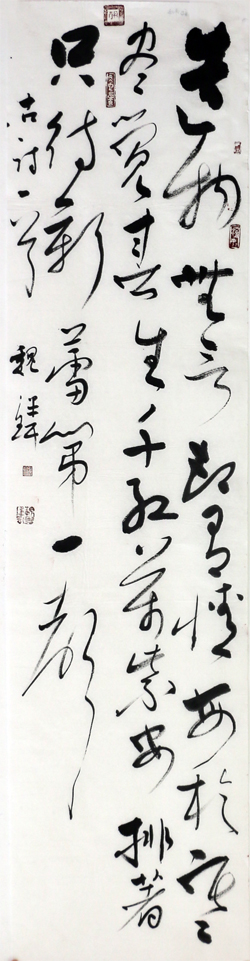 造物無言却有情每於寒
盡覺春生千紅萬紫安排著
只待新蕾第一聲
古詩一首 魏